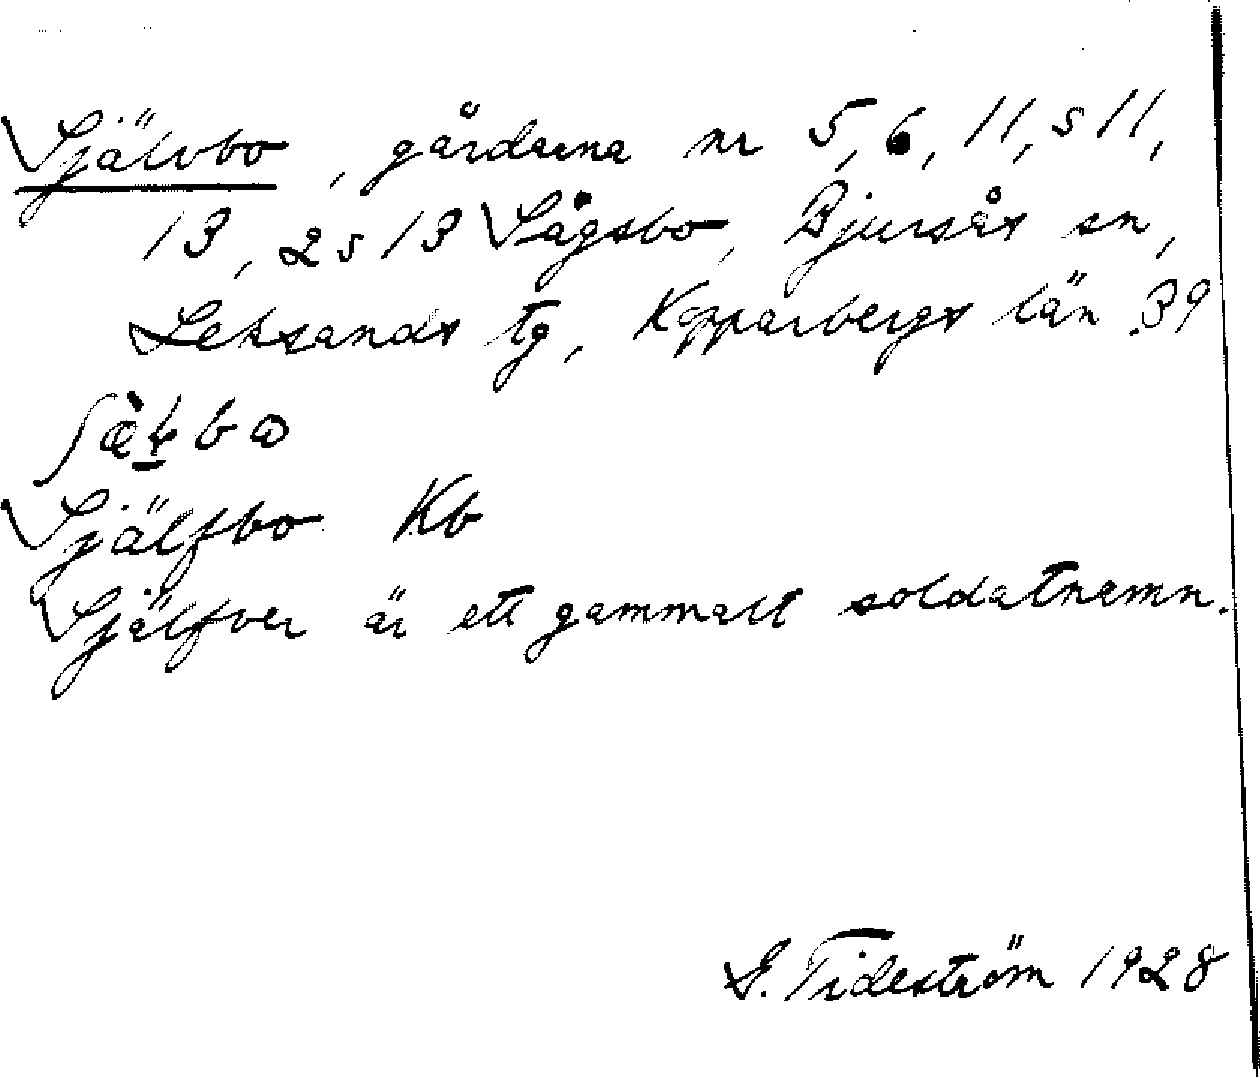 Självbo, gårdarna nr 5, 6, 11, s 11,
13, 2 s 13 Sågsbo, Bjursås sn,
Leksands tg, Kopparbergs län. 39
Själfbo Kb
Sjelfver är ett gammalt soldatnamn.
G. Tideström 1928